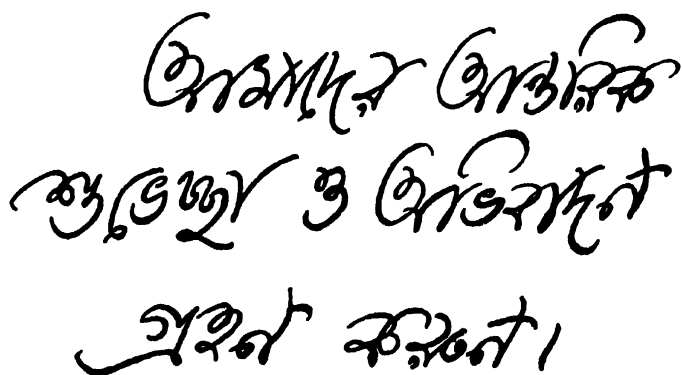 আমাদের আন্তরিক
শুভেচ্ছা ও অভিবাদন
গ্রহন করুন।